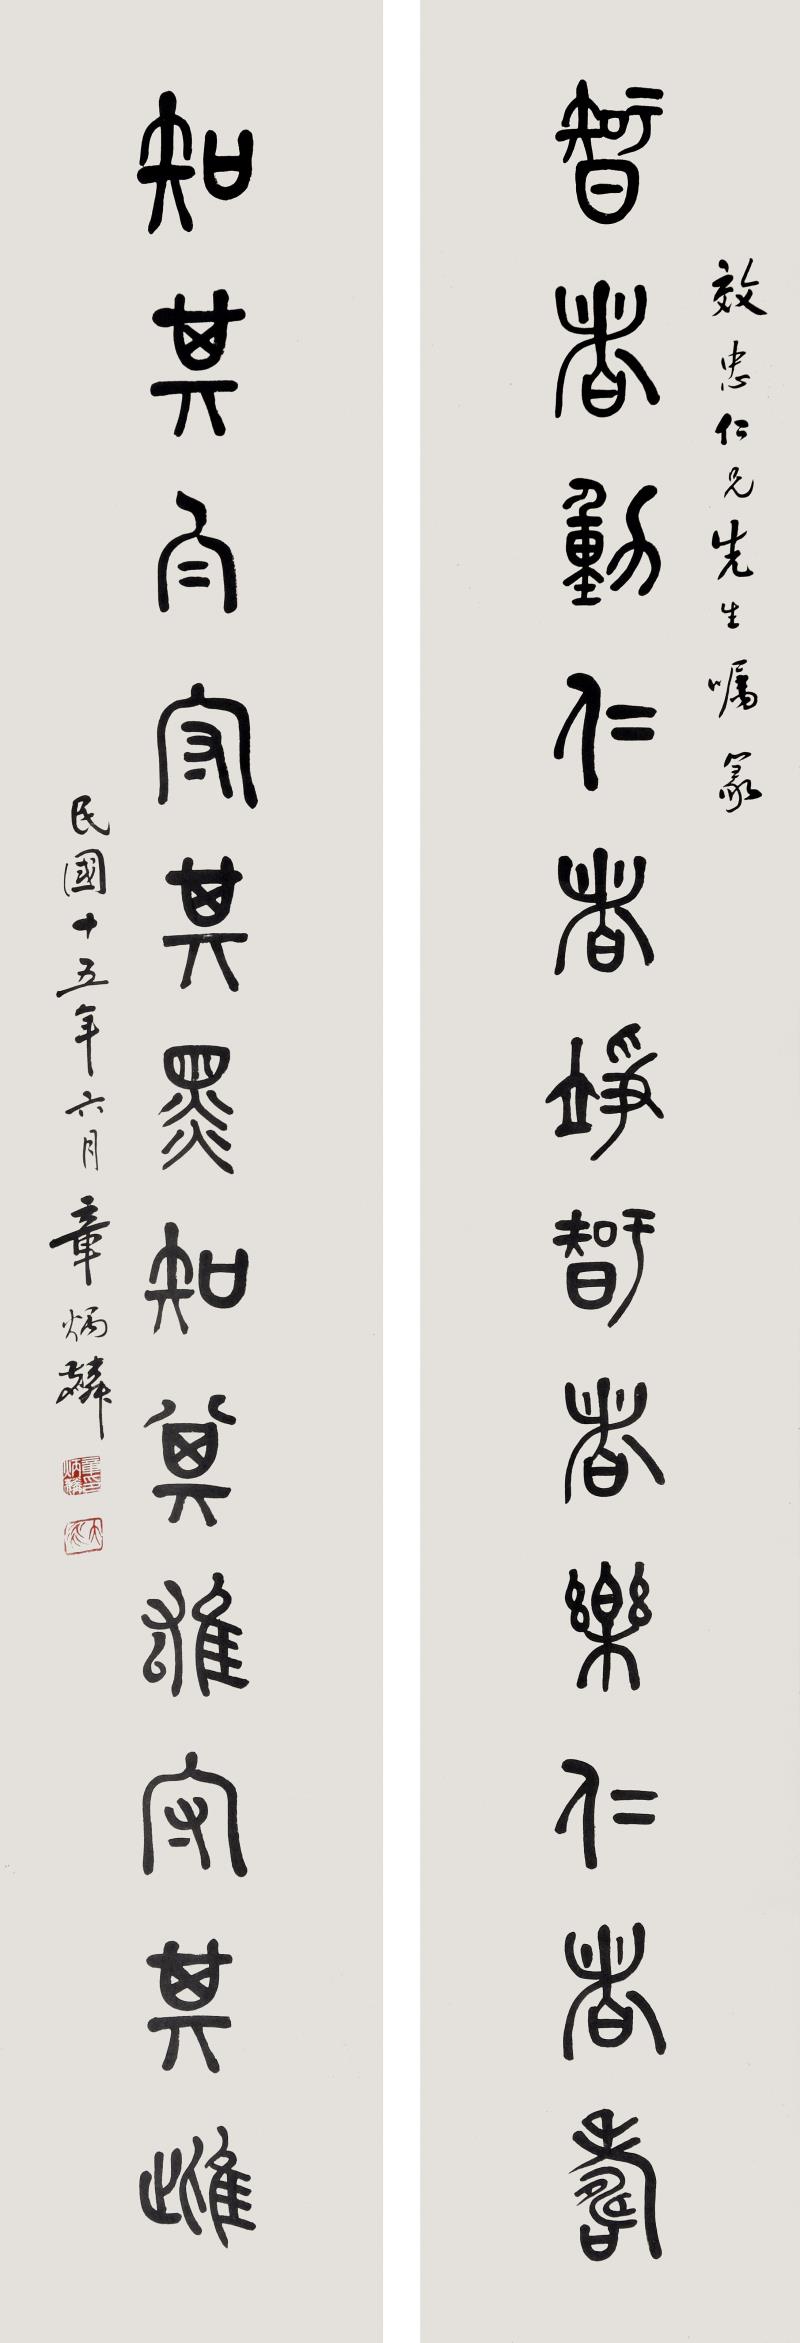 效忠仁兄先生嘱篆
智者動仁者竫智者樂仁者壽
知其白守其黑知其雄守其雌
民國十五年六月章炳麟
章印炳麟
太炎